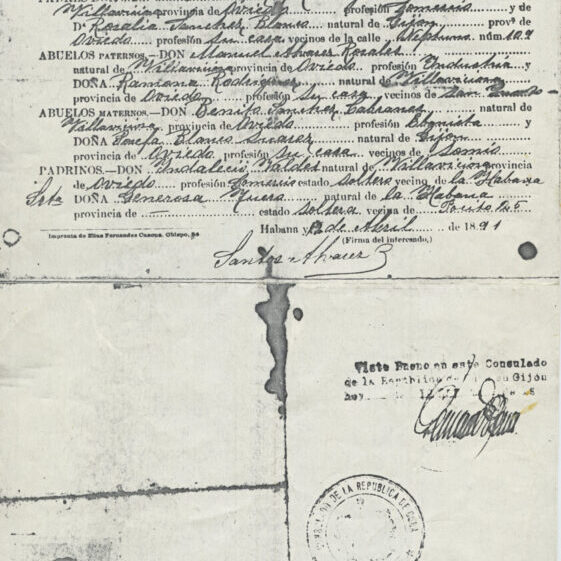 Villaviciosa provincia de Oviedo profesión Comercio y de
Dª Rosalia Sanchez Blanco natural de Gijon provª de
Oviedo profesión su casa vecinos de la calle Neptuno núm. 109
ABUELOS PATERNOS.—DON Manuel Alvarez Rosales
natural de Villaviciosa provincia de Oviedo profesión Industria y
DOÑA Ramona Rodriguez natural de Villaviciosa
provincia de Oviedo profesión su casa vecinos de
ABUELOS MATERNOS.—DON Benito Sanchez Cabranes natural de
Villaviciosa provincia de Oviedo profesión y
DOÑA Josefa Blanco Suarez natural de Gijon
provincia de Oviedo profesión su casa vecinos de Somió
PADRINOS.—DON Indalecio Valdes natural de Villaviciosa provincia
de Oviedo profesión Comercio estado soltero vecino de la Habana
Srta DOÑA Generosa natural de la Habana
provincia de — estado soltera vecina de
Habana y 12 de Abril de 1891
Imprenta de Elías Fernandez Casona, Obispo,
(Firma del interesado,)
Santos Alvarez
Visto Bueno en este Consulado
de la República de en Gijón
hoy
DE LA REPUBLICA DE CUBA